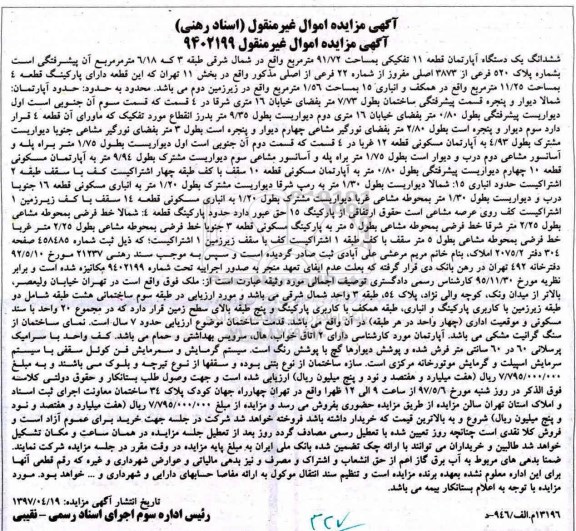 آگهی مزایده اموال غیرمنقول (اسناد رهنی)
آگهی مزایده اموال غیرمنقول ۹۴۰۲۱۹۹
ششدانگ یک دستگاه آپارتمان قطعه ۱۱ تفکیکی بمساحت ۹۱/۷۲ مترمربع واقع در شمال شرقی طبقه ۳ که ۶/۱۸ مترمربع آن پیشرفتگی است
بشماره پلاک ۵۲۰ فرعی از ۳۸۷۳ اصلی مفروز از شماره ۲۲ فرعی از اصلی مذکور واقع در بخش ۱۱ تهران که این قطعه دارای پارکینگ قطعه ۴
بمساحت ۱۱/۲۵ مترمربع واقع در همکف و انباری ۱۵ بمساحت ۱/۵۶ مترمربع واقع در زیرزمین دوم می باشد. محدود به حدود: حدود آپارتمان:
شمالا دیوار و پنجره قسمت پیشرفتگی ساختمان بطول ۷/۷۳ متر بفضای خیابان ۱۶ متری شرقا در ۴ قسمت که قسمت سوم آن جنوبی است اول
دیواریست پیشرفتگی بطول ۰/۸۰ متر بفضای خیابان ۱۶ متری دوم دیواریست بطول ۹/۳۵ متر بدرز انقطاع مورد تفکیک که ماورای آن قطعه ۴ قرار
دارد سوم دیوار و پنجره است بطول ۲/۸۰ متر بفضای نورگیر مشاعی چهارم دیوار و پنجره است بطول ۳ متر بفضای نورگیر مشاعی جنوبا دیواریست
مشترک بطول ۴/۹۳ به آپارتمان مسکونی قطعه ۱۲ غربا در ۴ قسمت که قسمت دوم آن جنوبی است اول دیواریست بطول ۱/۷۵ متر به راه پله و
آسانسور مشاعی دوم درب و دیوار است بطول ۱/۷۵ متر براه پله و آسانسور مشاعی سوم دیواریست مشترک بطول ۹/۹۴ متر به آپارتمان مسکونی
قطعه ۱۰ چهارم دیواریست پیشرفتگی بطول ۰/۸۰ متر به آپارتمان مسکونی قطعه ۱۰ سقف با کف طبقه چهار اشتراکیست کف با سقف طبقه ۲
اشتراکیست حدود انباری ۱۵: شمالا دیواریست بطول ۱/۳۰ متر به رمپ شرقا دیواریست مشترک بطول ۱/۲۰ متر به انباری مسکونی قطعه ۱۶ جنوبا
درب و دیواریست بطول ۱/۳۰ متر بمحوطه مشاعی غربا دیواریست مشترک بطول ۱/۲۰ به انباری مسکونی قطعه ۱۴ سقف با کف زیرزمین ۱
اشتراکیست کف روی عرصه مشاعی است حقوق ارتفاقی
حق عبور دارد حدود پارکینگ قطعه ۴: شمالا خط فرضی بمحوطه مشاعی
بطول ۲/۲۵ متر شرقا خط فرضی بمحوطه مشاعی بطول ۵ متر به پارکینگ مسکونی قطعه ۳ جنوبا خط فرضی بمحوطه مشاعی بطول ۲/۲۵ متر غربا
خط فرضی بمحوطه مشاعی بطول ۵ متر سقف با کف طبقه ۱ اشتراکیست کف با سقف زیرزمین ۱ اشتراکیست؛ که ذیل ثبت شماره ۴۵۸۴۸۵ صفحه
۳۰۴ دفتر ۲۰۷۵/۲ املاک، بنام خانم مریم مرعشی علی آبادی ثبت و صادر گردیده است و سپس به موجب سند رهنی ۲۱۲۳۷ مورخ ۹۲/۵/۱۰
دفترخانه ۴۹۲ تهران در رهن بانک دی قرار گرفته که بعلت عدم ایفای تعهد منجر به صدور اجراییه تحت شماره ۹۴۰۲۱۹۹ مکانیزه شده است و برابر
نظریه مورخ ۹۵/۱۱/۳۰ کارشناس رسمی دادگستری توصیف اجمالی مورد وثیقه عبارت است از: ملک فوق واقع است در تهران خیابان ولیعصر،
بالاتر از میدان ونک، کوچه والی نژاد، پلاک ۵۴، طبقه ۳ واحد شمال شرقی می باشد و مورد ارزیابی در طبقه سوم ساختمانی هشت طبقه شامل دو
طبقه زیرزمین با کاربری پارکینگ و انباری، طبقه همکف با کاربری پارکینگ و پنج طبقه بالای سطح زمین قرار دارد که در مجموع ۲۰ واحد با سند
مسکونی و موقعیت اداری (چهار واحد در هر طبقه) در آن واقع می باشد. قدمت ساختمان موضوع ارزیابی حدود ۷ سال است. نمای ساختمان از
سنگ گرانیت مشکی می باشد. آپارتمان مورد کارشناسی دارای ۲ اتاق خواب، هال، سرویس بهداشتی و حمام می باشد. کف واحد با سرامیک
پرسلانی ۶۰ در ۶۰ سانتی متر فرش شده و پوشش دیوارها گچ با پوشش رنگ است. سیستم گرمایش و سرمایش فن کوئل سقفی با سیستم
سرمایش اسپلیت و گرمایش موتورخانه مرکزی است. سازه ساختمان از نوع بتنی بوده و سقفها از نوع تیرچه و بلوک می باشند و به مبلغ
۷/۷۹۵/۰۰۰/۰۰۰ ریال (هفت میلیارد و هفتصد و نود و پنج میلیون ریال) ارزیابی شده است و جهت وصول طلب بستانکار و حقوق دولتی کلاسه
فوق الذکر در روز شنبه مورخ ۹۷/۵/۶ از ساعت ۹ الی ۱۲ ظهر واقع در تهران چهارراه جهان کودک پلاک ۳۴ ساختمان معاونت اجرای ثبت اسناد
و املاک استان تهران سالن مزایده از طریق مزایده حضوری بفروش می رسد و مزایده از مبلغ ۷/۷۹۵/۰۰۰/۰۰۰ ریال (هفت میلیارد و هفتصد و نود
و پنج میلیون ریال) شروع و به بالاترین قیمت که خریدار داشته باشد فروخته خواهد شد شرکت در جلسه جهت خرید برای عموم آزاد است و
فروش کلا نقدی است چنانچه روز تعیین شده با تعطیل رسمی مصادف گردد روز بعد از تعطیل جلسه مزایده در همان ساعت و مکان تشکیل
خواهد شد طالبین و خریداران می توانند با ارائه چک تضمین شده بانک ملی ایران به مبلغ پایه مزایده در وقت مقرر در جلسه مزایده شرکت نمایند.
ضمنا بدهی های مربوط به آب برق گاز اعم از حق انشعاب و اشتراک و مصرف و نیز بدهی مالیاتی و عوارض شهرداری و غیره که رقم قطعی آنها
برای این اداره معلوم نشده بعهده برنده مزایده است و تنظیم سند انتقال موکول به ارائه مفاصا حسابهای دارایی و شهرداری و ... خواهد بود. مورد
مزایده با توجه به اعلام بستانکار بیمه می باشد.
تاریخ انتشار آگهی مزایده: ۱۳۹۷/۰۴/۱۹
۱۳۱۹۶م.الف/۹۴۶-د
رئیس اداره سوم اجرای اسناد رسمی - نقیبی